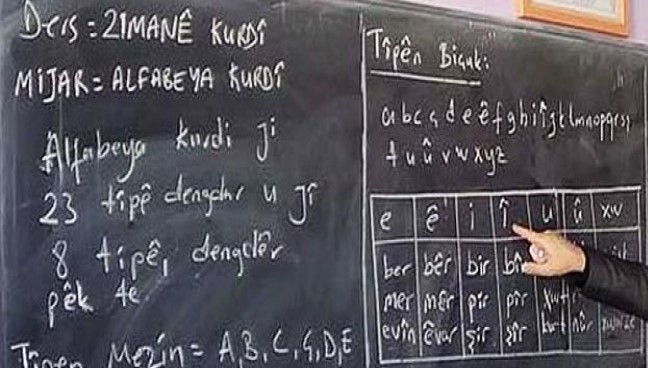 Ders = ZIMANÊ KURDÎ
MIJAR = ALFABEYA KURDÎ
Alfabeya kurdi ji
23 tîpê dengdar u jî
8 tîpê, dengdêr
pêk te
Tîpen Mezin = A, B, C, Ç, D, E
Tîpên Biçuk:
a b c ç d e ê f g h i î j k l m n o p q r s ş
t u û v w x y z
e ê i î u û xw
ber bêr bir
mer mêr pir pîr
evîn êvar şir şîr kurt nûr